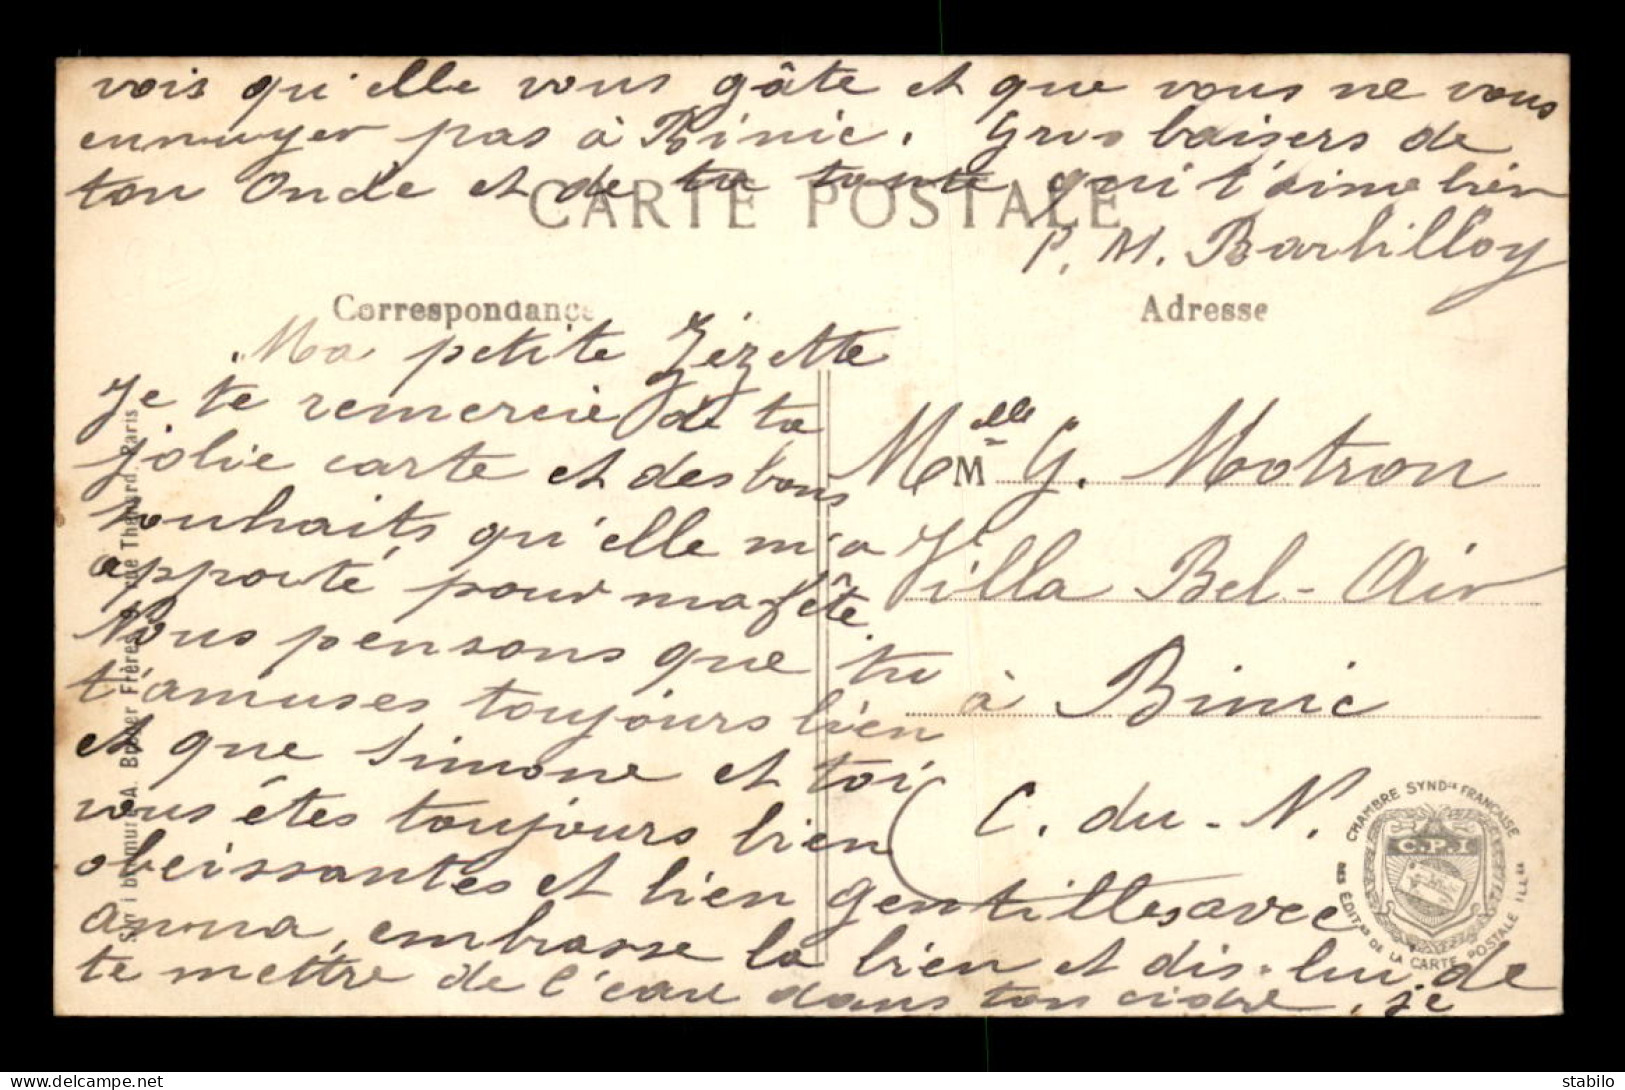 vois qu'elle vous gâte et que vous ne vous
ennuyer pas à Binic. Gros baisers de
ton Oncle et de ta tante qui t'aime bien
P. M. Barbilloy
CARTE POSTALE
Correspondance
Adresse
Ma petite Zézette
Je te remercie de ta
jolie carte et des bons
souhaits qu'elle m'a
apporté pour ma fête.
Nous pensons que tu
t'amuses toujours bien
et que Simone et toi
vous êtes toujours bien
obeissantes et bien gentilles avec
anna, embrasse la bien et dis-lui de
te mettre de l'eau dans ton cidre, je
Melle G. Motron
M
Villa Bel-Air
à Binic
(C. du-N.
CHAMBRE SYNDle FRANÇAISE
C.P.I
DES ÉDITrs DE LA CARTE POSTALE ILLée
A. Breger Frères, rue Thénard, Paris